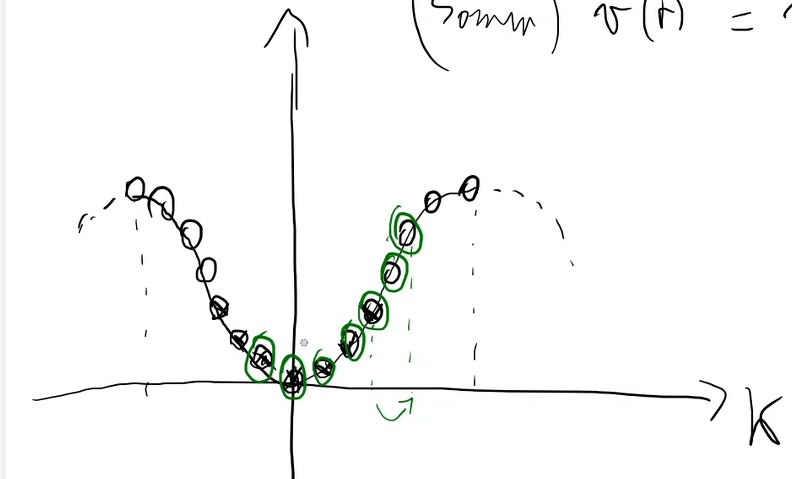 (Somm) v(t) =
K